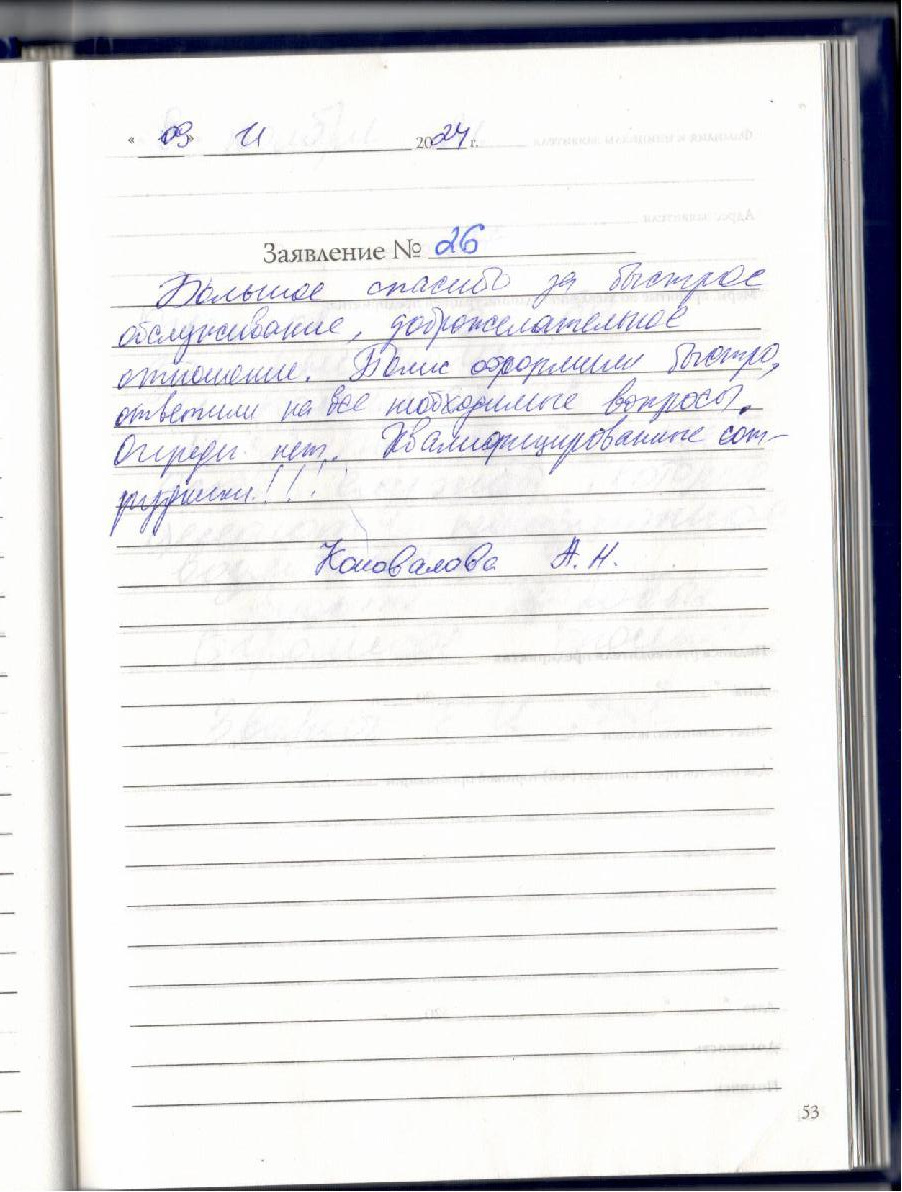 « 09 » 11 2024 г.
Заявление № 26
Большое спасибо за быстрое
обслуживание, доброжелательное
отношение. Полис оформили быстро,
ответили на все необходимые вопросы.
Очереди нет. Квалифицированные сот-
рудники!!!
Коновалова А.Н.
53